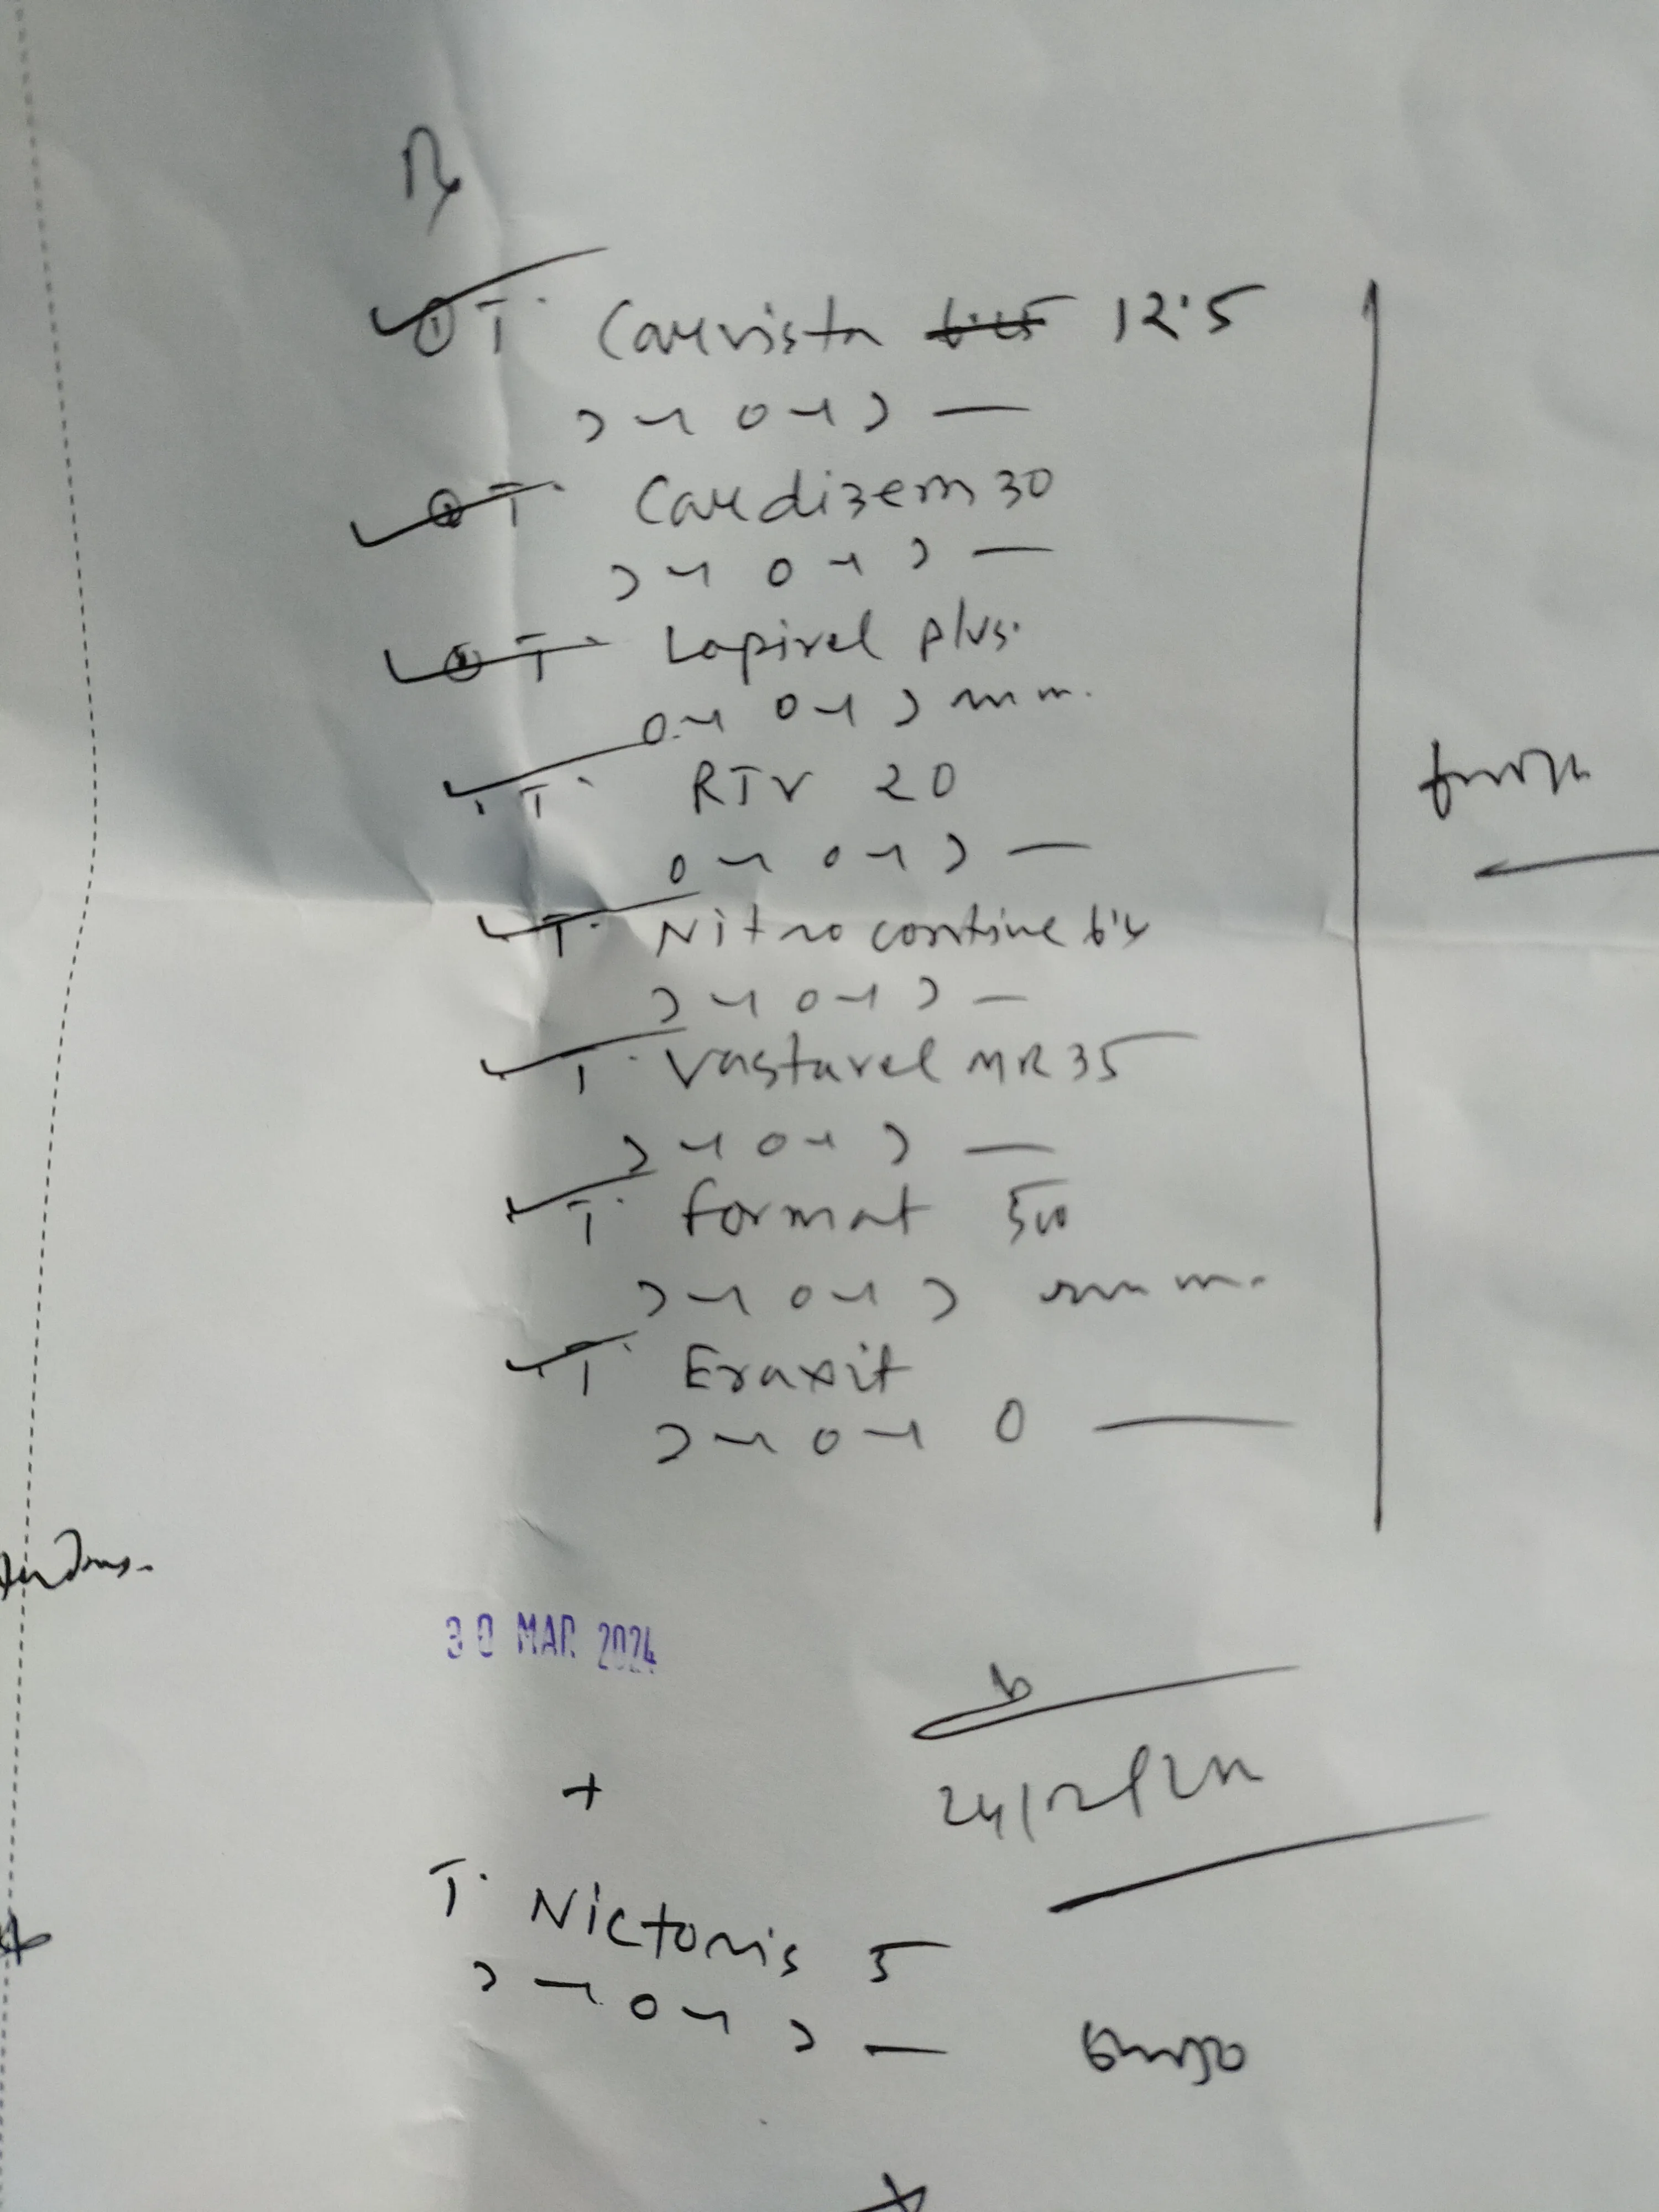 Rx
① T. Carvista 6.25 12.5
১ – ০ – ১ —
② T. Cardizem 30
১ – ০ – ১ —
③ T. Lopirel plus.
০ – ০ – ১
T. RTV 20
০ – ০ – ১ —
T. Nitrocontine 6.4
১ – ০ – ১ —
T. Vastarel MR 35
১ – ০ – ১ —
T. Format 500
১ – ০ – ১
T. Eraxit
১ – ০ – ০ —
30 MAR 2024
+
T. Nictoris 5
১ – ০ – ১ —